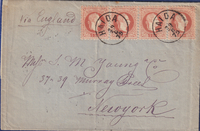 via England
HAIDA
HAIDA
Messrs S. M. Young & Co
37-39 Murray Street
Newyork